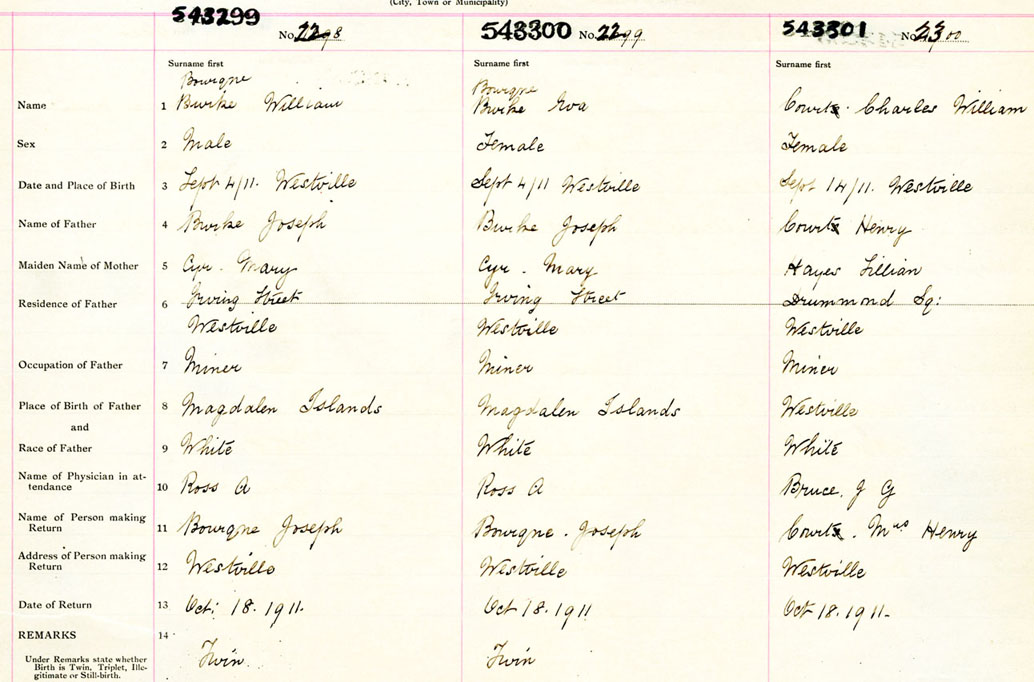 (City, Town or Municipality)
543299 No. 2298 543300 No. 2299 543301 No. 2300
Surname first Surname first Surname first
Bourgne Bourgne
Name 1 Burke William Burke Eva Court Charles William
Sex 2 Male Female Female
Date and Place of Birth 3 Sept 4/11. Westville Sept 4/11 Westville Sept 14/11. Westville
Name of Father 4 Burke Joseph Burke Joseph Court Henry
Maiden Name of Mother 5 Cyr. Mary Cyr. Mary Hayes Lillian
Residence of Father 6 Irving Street Irving Street Drummond Sq:
Westville Westville Westville
Occupation of Father 7 Miner Miner Miner
Place of Birth of Father 8 Magdalen Islands Magdalen Islands Westville
and
Race of Father 9 White White White
Name of Physician in at-
tendance 10 Ross A Ross A Bruce. J G
Name of Person making
Return 11 Bourgne Joseph Bourgne. Joseph Court. Mrs Henry
Address of Person making
Return 12 Westville Westville Westville
Date of Return 13 Oct: 18. 1911. Oct 18. 1911 Oct 18. 1911.
REMARKS 14
Under Remarks state whether
Birth is Twin, Triplet, Ille-
gitimate or Still-birth.
Twin Twin